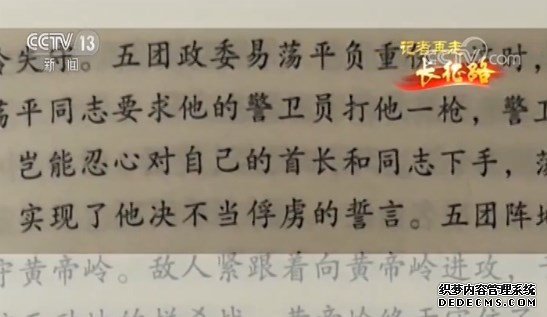 CCTV 13
新闻
记者再走
长征路
CCTV.com
失序。五团政委易荡平负重 时,
荡平同志要求他的警卫员打他一枪,警卫
岂能忍心对自己的首长和同志下手,荡
实现了他决不当俘虏的誓言。五团阵地
守黄帝岭。敌人紧跟着向黄帝岭进攻,
织梦内容管理系统
DEDECMS.COM